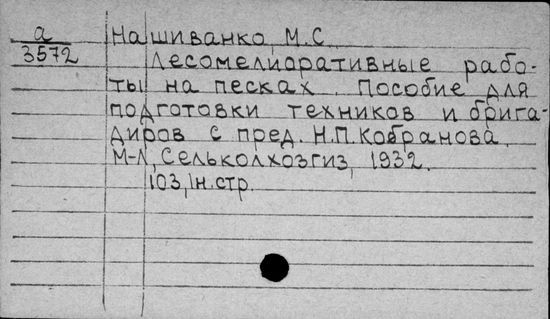 а Нашиванко, М.С.
3572 Лесомелиоративные рабо-
ты на песках. Пособие для
подготовки техников и брига-
диров с пред. Н.П. Кобранова.
М-Л, Сельколхозгиз, 1932.
103, 1н. стр.